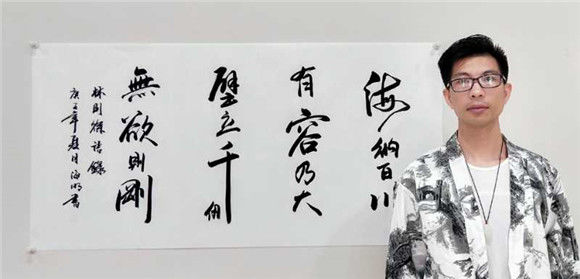 海納百川
有容乃大
壁立千仞
無欲則剛
林則徐語錄
庚子年夏月海明書